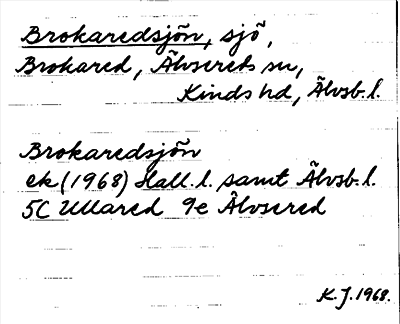 Brokaredsjön, sjö,
Brokared, Älvsereds sn,
Kinds hd, Älvsb. l.
Brokaredsjön
ek (1968) Hall. l. samt Älvsb. l.
5C Ullared 9e Älvsered
K. J. 1968.